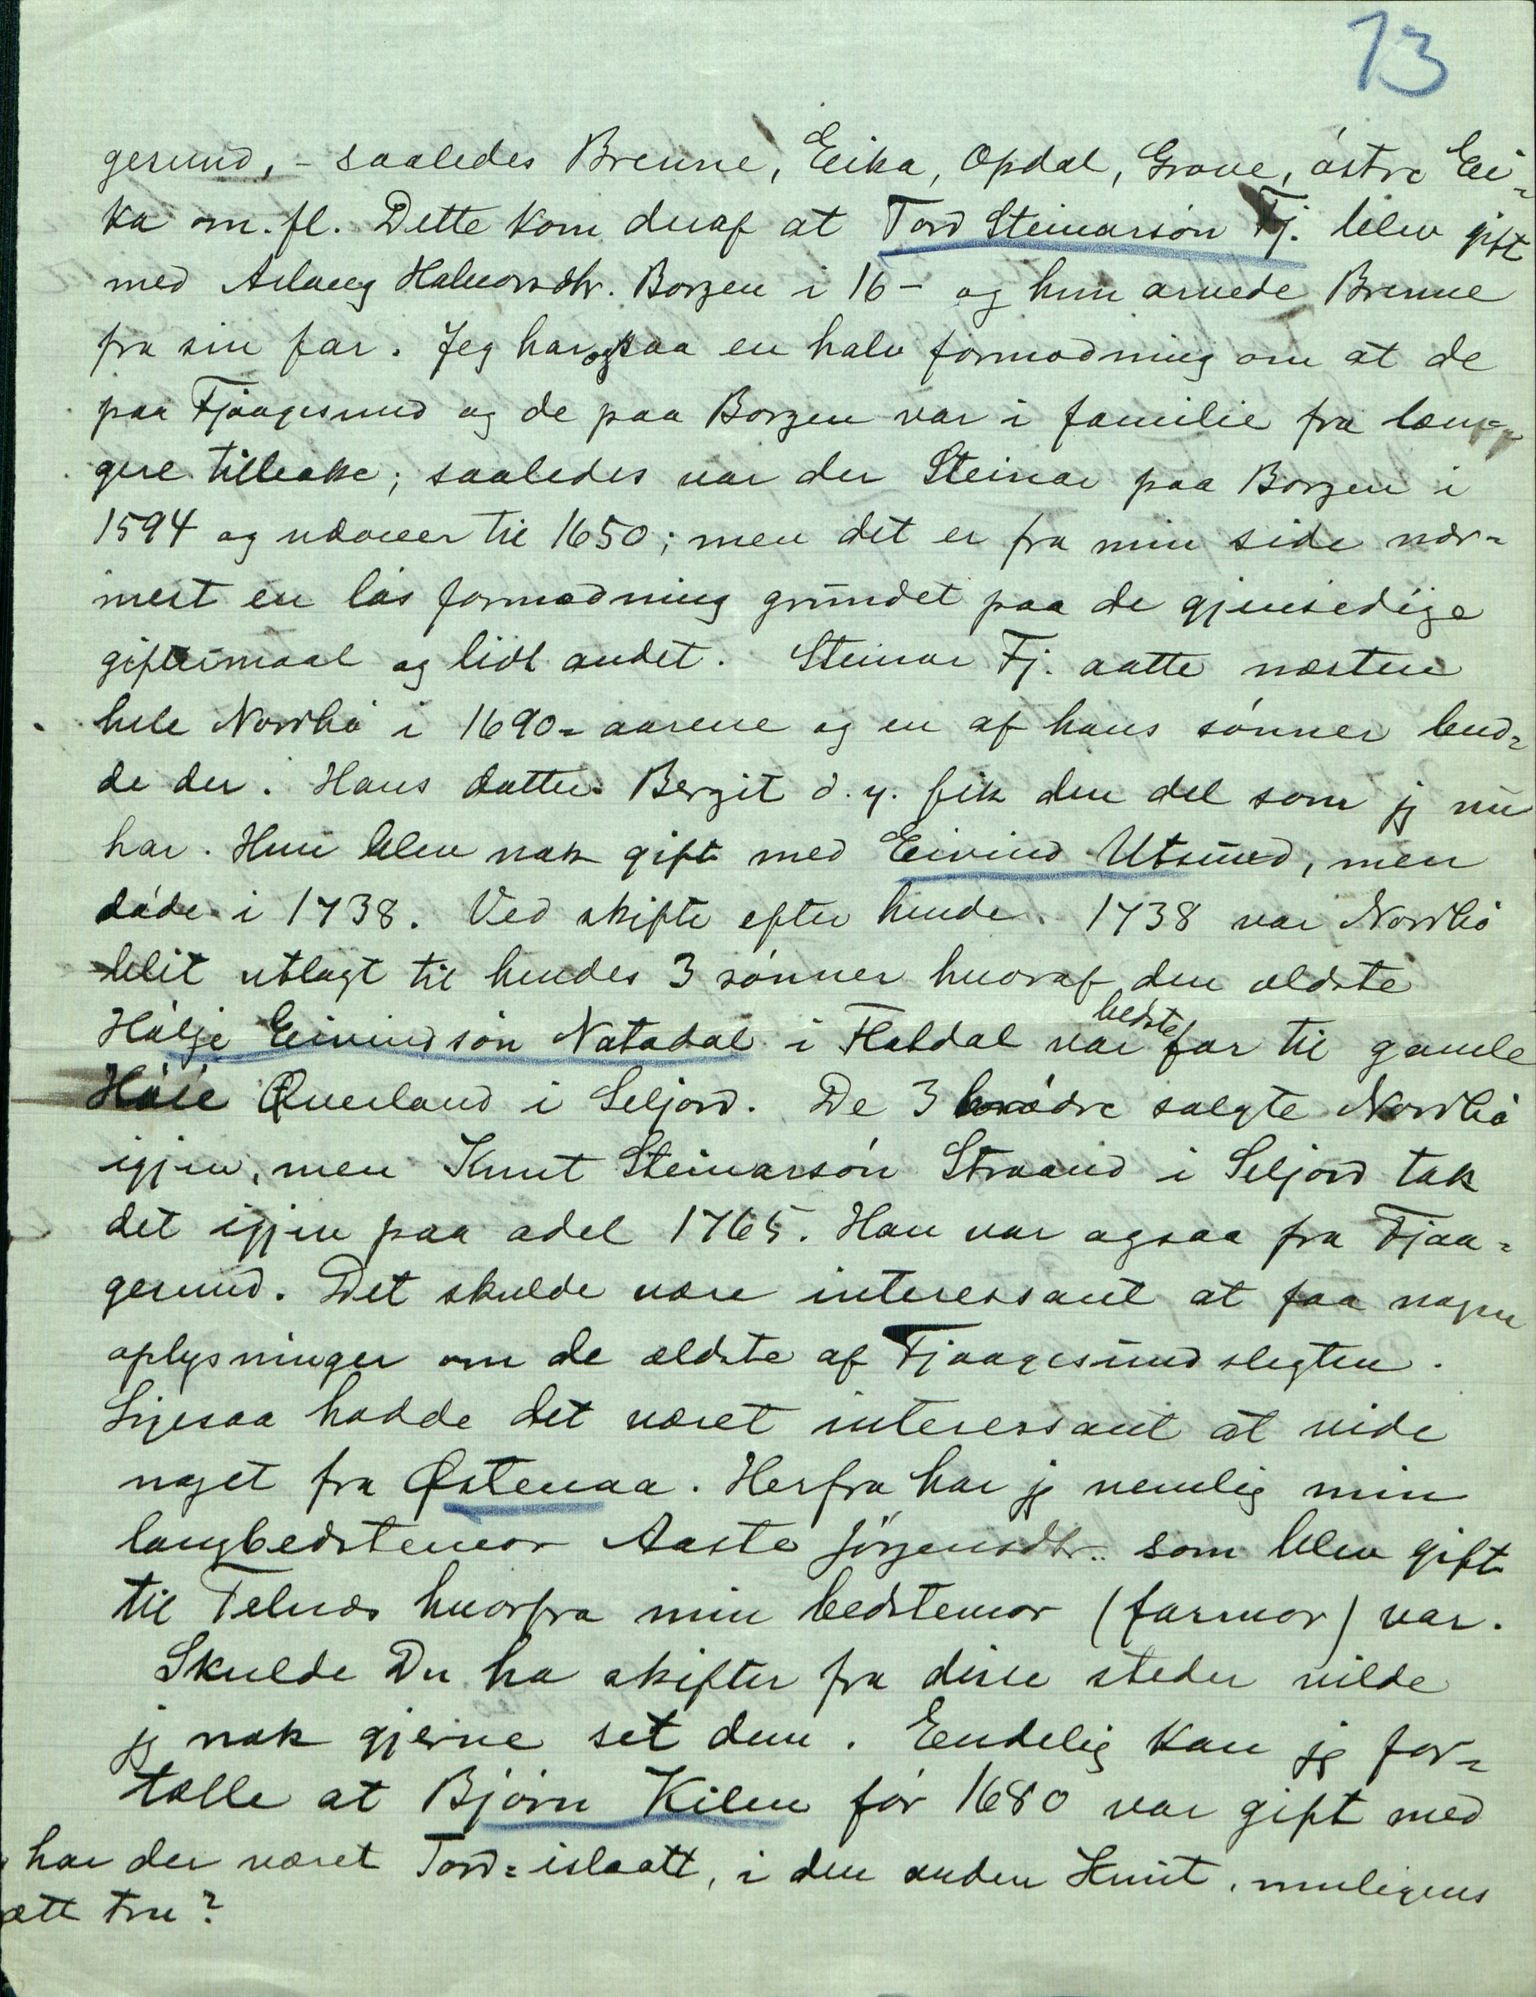 13
gesund, - saaledes Brenne, Eika, Opdal, Grave, östre Ei-
ka m. fl. Dette kom deraf at Tord Steinarsön Fj. blev gift
med Aslaug Halvorsdtr. Borgen i 16 - og hun arvede Brenne
fra sin far. Jeg har ogsaa en halv formodning om at de
paa Fjaagesund og de paa Borgen var i familie fra læn-
gere tilbake; saaledes var der Steinar paa Borgen i
1594 og udover til 1650; men det er fra min side nær-
mest en lös formodning grundet paa de gjensedige
giftermaal og lidt andet. Steinar Fj. aatte næsten
hele Nordbö i 1690-aarene og en af hans sönner bud-
de der. Hans datter Bergit d. y. fik den del som jg nu
har. Hun blev nok gift med Eivind Utsund, men
döde i 1738. Ved skifte efter hende 1738 var Nordbö
blit utlagt til hendes 3 sönner hvoraf den ældste
Hölje Eivindsön Natadal i Flatdal var bedstefar til gamle
Höie Øverland i Seljord. De 3 brödre solgte Nordbö
igjen, men Knut Steinarsön Straand i Seljord tok
det igjen paa odel 1765. Han var ogsaa fra Fjaa-
gesund. Det skulde være interessant at faa nogen
oplysninger om de ældste af Fjaagesundslegten.
Ligesaa hadde det været interessant at vide
noget fra Østenaa. Herfra har jg nemlig min
langbedstemor Aaste Jörgensdtr. som blev gift
til Telnæs hvorfra min bedstemor (farmor) var.
Skulde Du ha skifter fra disse steder vilde
jg nok gjerne set dem. Endelig kan jg for-
tælle at Björn Kilen för 1680 var gift med
har der været Tord-islaatt, i den anden Knut, muligens
ætt tru?